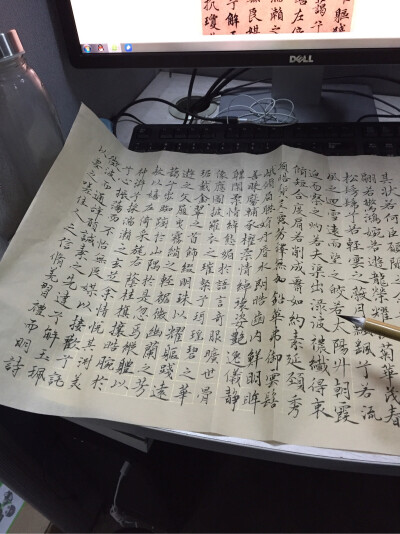 其狀若何臣願聞之
翩若驚鴻婉若遊龍榮曜秋菊華茂春
松髣髴兮若輕雲之蔽月飄颻兮若流
風之迴雪遠而望之皎若太陽升朝霞
迫而察之灼若芙蕖出淥波穠纖得衷
脩短合度肩若削成腰如約素延頸秀
項皓質呈露芳澤無加鉛華弗御雲髻
峨峨脩眉聯娟丹唇外朗皓齒內鮮明眸
善睞靨輔承權瓌姿艷逸儀靜
體閑柔情綽態媚於語言奇服曠世骨
像應圖披羅衣之璀粲兮珥瑤碧之華
琚戴金翠之首飾綴明珠以耀軀踐遠
遊之文履曳霧綃之輕裾微幽蘭之芳
藹兮步踟躕於山隅於是忽焉縱體以
遨以嬉左倚采旄右蔭桂旗攘皓腕於
神滸兮采湍瀨之玄芝余情悅其淑美
兮心振蕩而不怡無良媒以接歡兮託
微波而通辭願誠素之先達兮解玉珮
以要之嗟佳人之信脩羌習禮而明詩
DELL